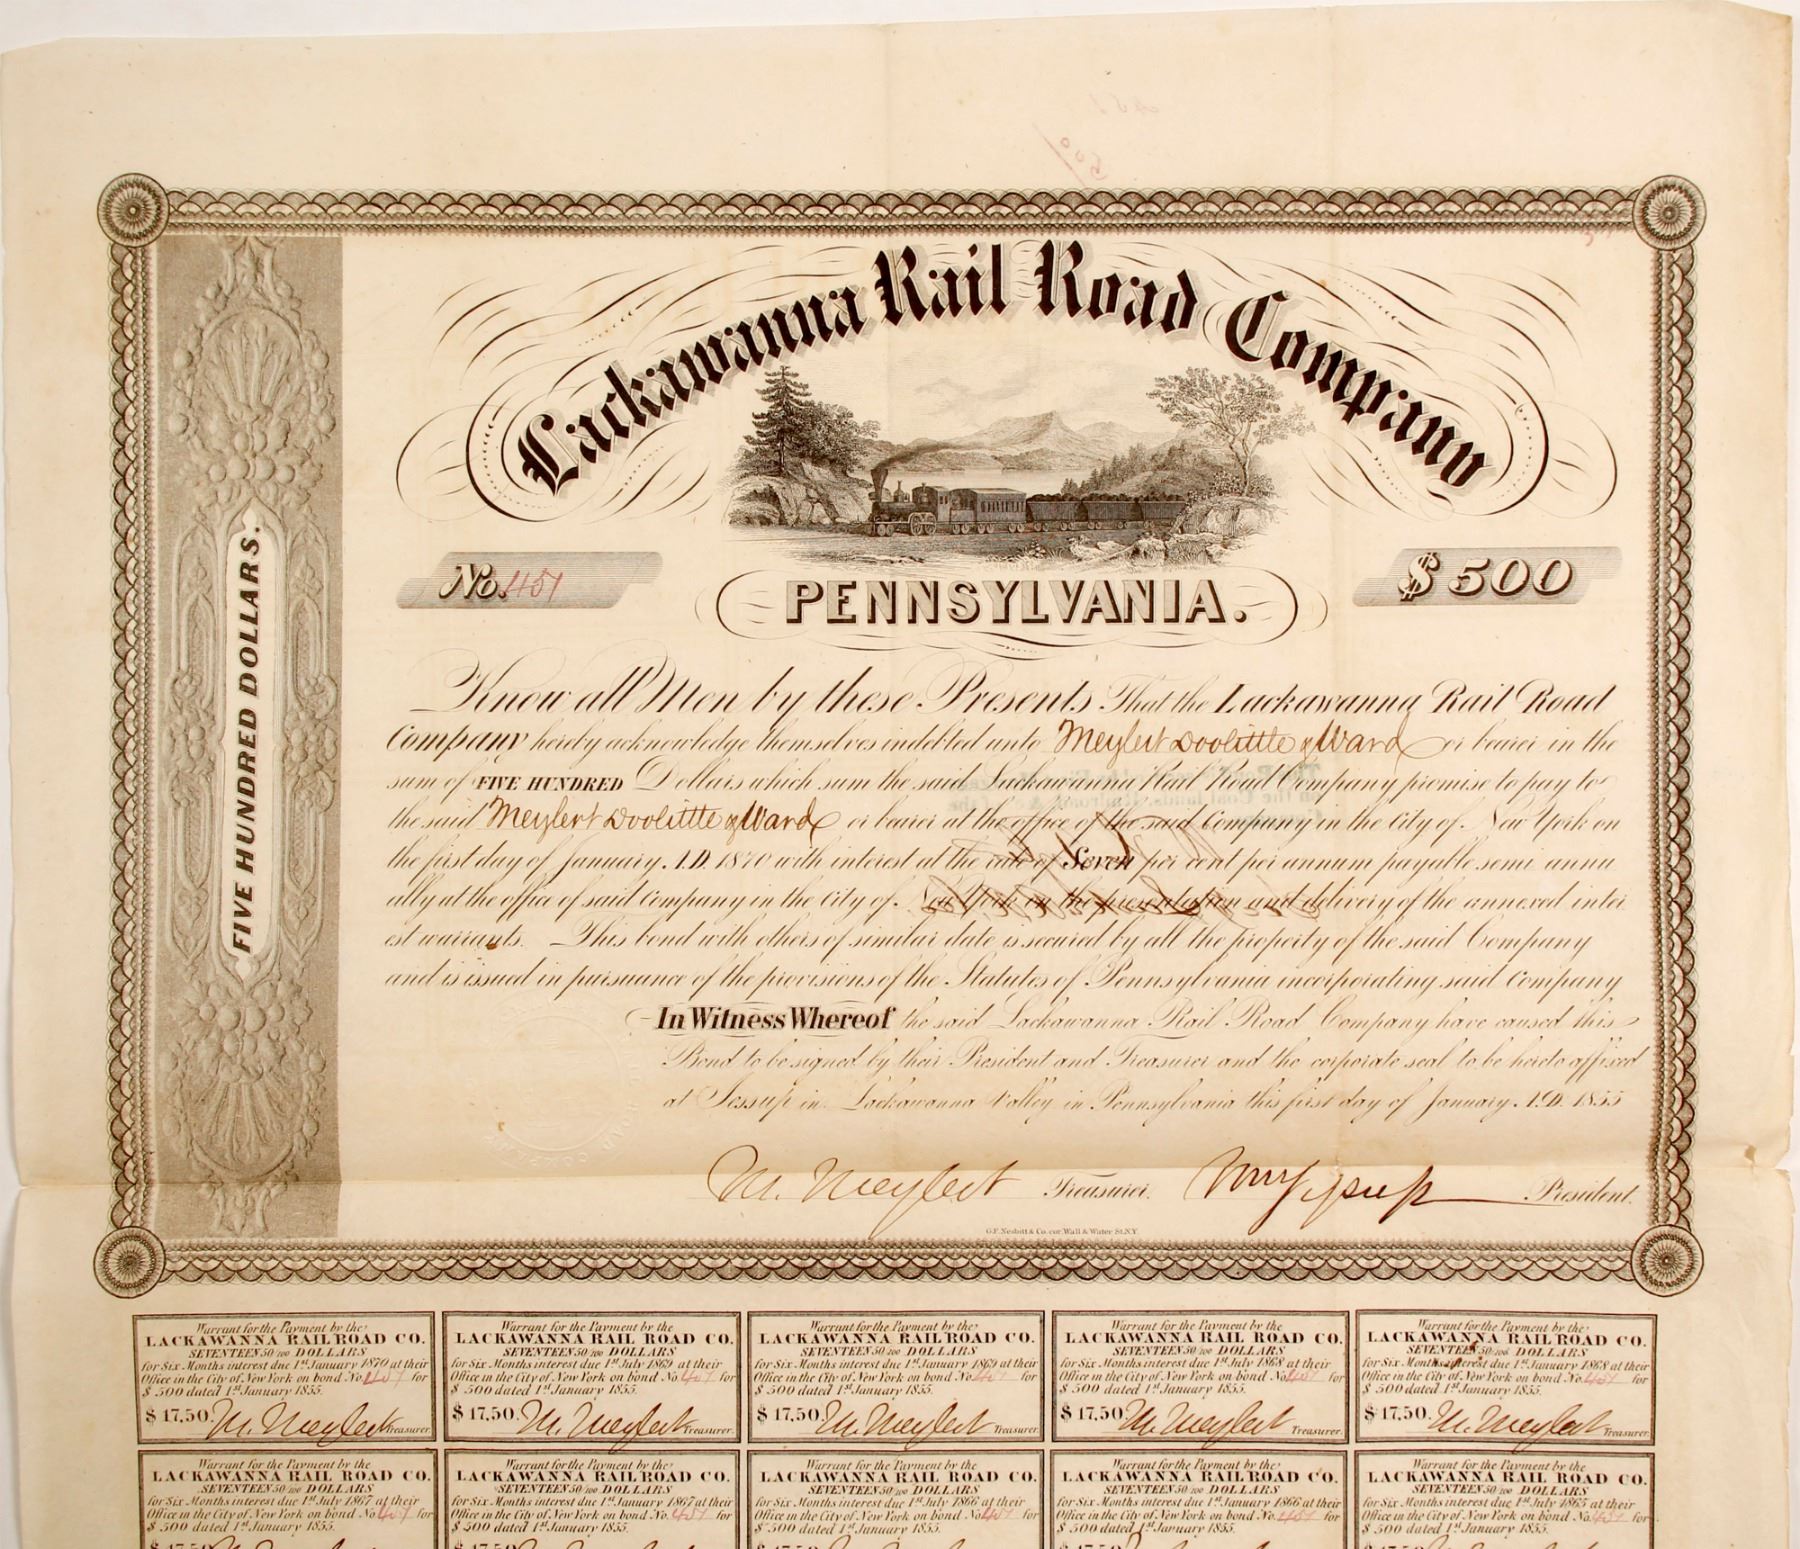 Lackawanna Rail Road Company
No. 451
PENNSYLVANIA.
$500
FIVE HUNDRED DOLLARS.
Know all Men by these Presents That the Lackawanna Rail Road
Company hereby acknowledge themselves indebted unto Meylert Doolittle & Ward or bearer in the
sum of FIVE HUNDRED Dollars which sum the said Lackawanna Rail Road Company promise to pay to
the said Meylert Doolittle & Ward or bearer at the office of the said Company in the City of New York on
the first day of January A.D. 1870 with interest at the rate of Seven per cent per annum payable semi annu
ally at the office of said Company in the City of New York on the presentation and delivery of the annexed inter
est warrants. This bond with others of similar date is secured by all the property of the said Company
and is issued in pursuance of the provisions of the Statutes of Pennsylvania incorporating said Company
In Witness Whereof the said Lackawanna Rail Road Company have caused this
Bond to be signed by their President and Treasurer and the corporate seal to be hereto affixed
at Jessup in Lackawanna Valley in Pennsylvania this first day of January A.D. 1855
M. Meylert Treasurer. Wm Jessup President.
G.F. Nesbitt & Co. cor. Wall & Water St. N.Y.
Warrant for the Payment by the
LACKAWANNA RAIL ROAD CO.
SEVENTEEN 50/100 DOLLARS
for Six Months interest due 1st January 1870 at their
Office in the City of New York on bond No. 451 for
$500 dated 1st January 1855.
$17,50. M. Meylert Treasurer.
Warrant for the Payment by the
LACKAWANNA RAIL ROAD CO.
SEVENTEEN 50/100 DOLLARS
for Six Months interest due 1st July 1869 at their
Office in the City of New York on bond No. 451 for
$500 dated 1st January 1855.
$17,50. M. Meylert Treasurer.
Warrant for the Payment by the
LACKAWANNA RAIL ROAD CO.
SEVENTEEN 50/100 DOLLARS
for Six Months interest due 1st January 1869 at their
Office in the City of New York on bond No. 451 for
$500 dated 1st January 1855.
$17,50. M. Meylert Treasurer.
Warrant for the Payment by the
LACKAWANNA RAIL ROAD CO.
SEVENTEEN 50/100 DOLLARS
for Six Months interest due 1st July 1868 at their
Office in the City of New York on bond No. 451 for
$500 dated 1st January 1855.
$17,50 M. Meylert Treasurer.
Warrant for the Payment by the
LACKAWANNA RAIL ROAD CO.
SEVENTEEN 50/100 DOLLARS
for Six Months interest due 1st January 1868 at their
Office in the City of New York on bond No. 451 for
$500 dated 1st January 1855.
$17,50. M. Meylert Treasurer.
Warrant for the Payment by the
LACKAWANNA RAIL ROAD CO.
SEVENTEEN 50/100 DOLLARS
for Six Months interest due 1st July 1867 at their
Office in the City of New York on bond No. 451 for
$500 dated 1st January 1855.
Warrant for the Payment by the
LACKAWANNA RAIL ROAD CO.
SEVENTEEN 50/100 DOLLARS
for Six Months interest due 1st January 1867 at their
Office in the City of New York on bond No. 451 for
$500 dated 1st January 1855.
Warrant for the Payment by the
LACKAWANNA RAIL ROAD CO.
SEVENTEEN 50/100 DOLLARS
for Six Months interest due 1st July 1866 at their
Office in the City of New York on bond No. 451 for
$500 dated 1st January 1855.
Warrant for the Payment by the
LACKAWANNA RAIL ROAD CO.
SEVENTEEN 50/100 DOLLARS
for Six Months interest due 1st January 1866 at their
Office in the City of New York on bond No. 451 for
$500 dated 1st January 1855.
Warrant for the Payment by the
LACKAWANNA RAIL ROAD CO.
SEVENTEEN 50/100 DOLLARS
for Six Months interest due 1st July 1865 at their
Office in the City of New York on bond No. 451 for
$500 dated 1st January 1855.